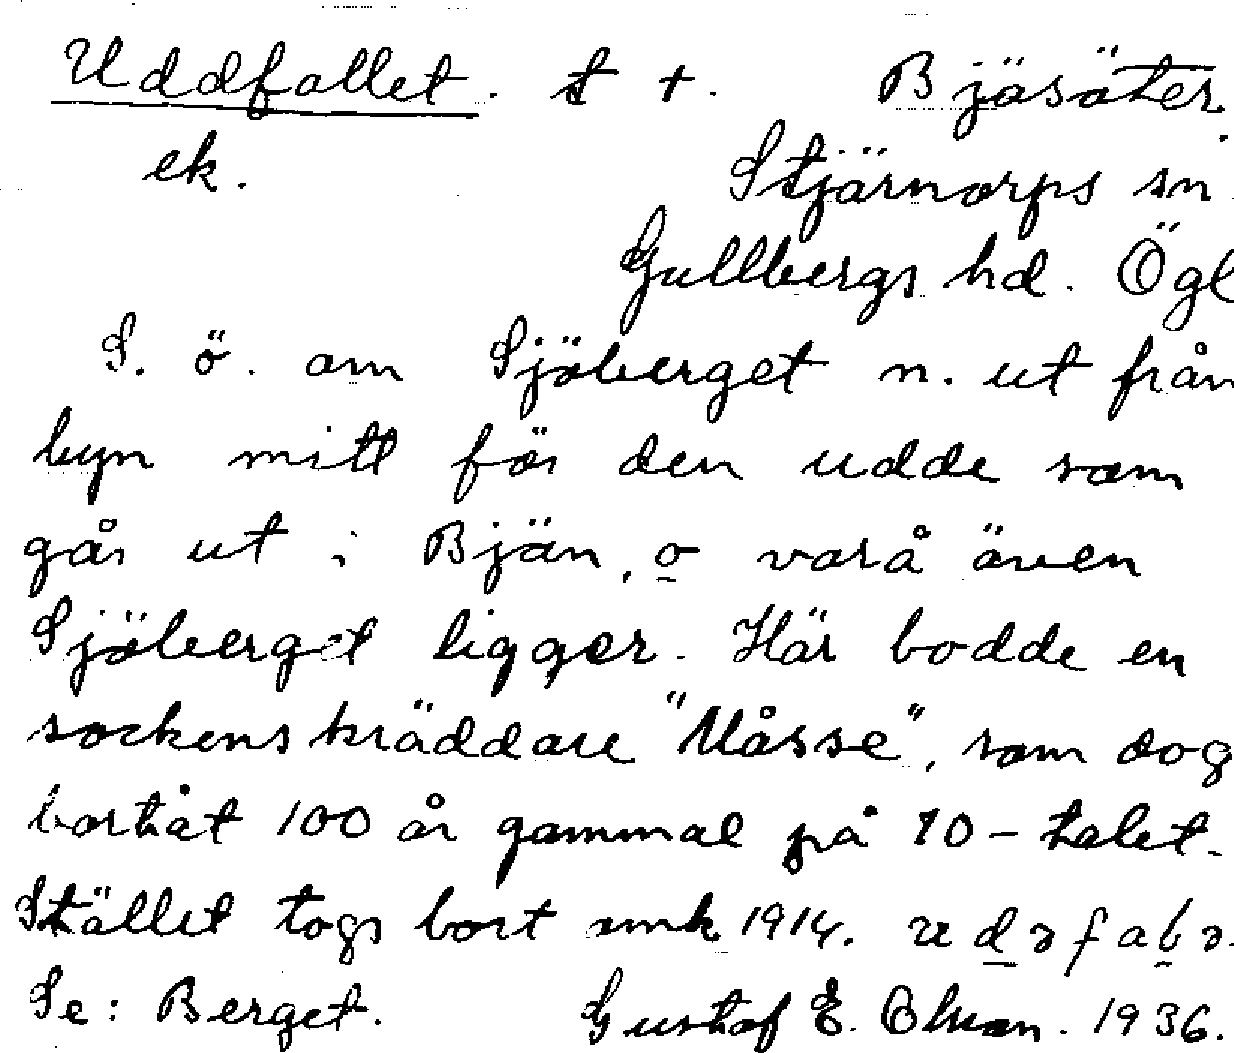 Uddfallet. t +. Bjäsäter.
ek. Stjärnorps sn.
Gullbergs hd. Ögl
S. ö. om Sjöberget n. ut från
byn mitt för den udde som
går ut i Bjän, o varå även
Sjöberget ligger. Här bodde en
sockenskräddare "Måsse", som dog
bortåt 100 år gammal på 10-talet.
Stället togs bort omk 1914.
Se: Berget. Gustaf E. Olson. 1936.